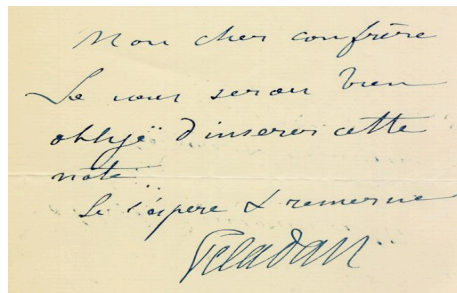 Mon cher confrère
Je vous serai bien
obligé d'inserer cette
note
Je l'espere & remercie
Peladan